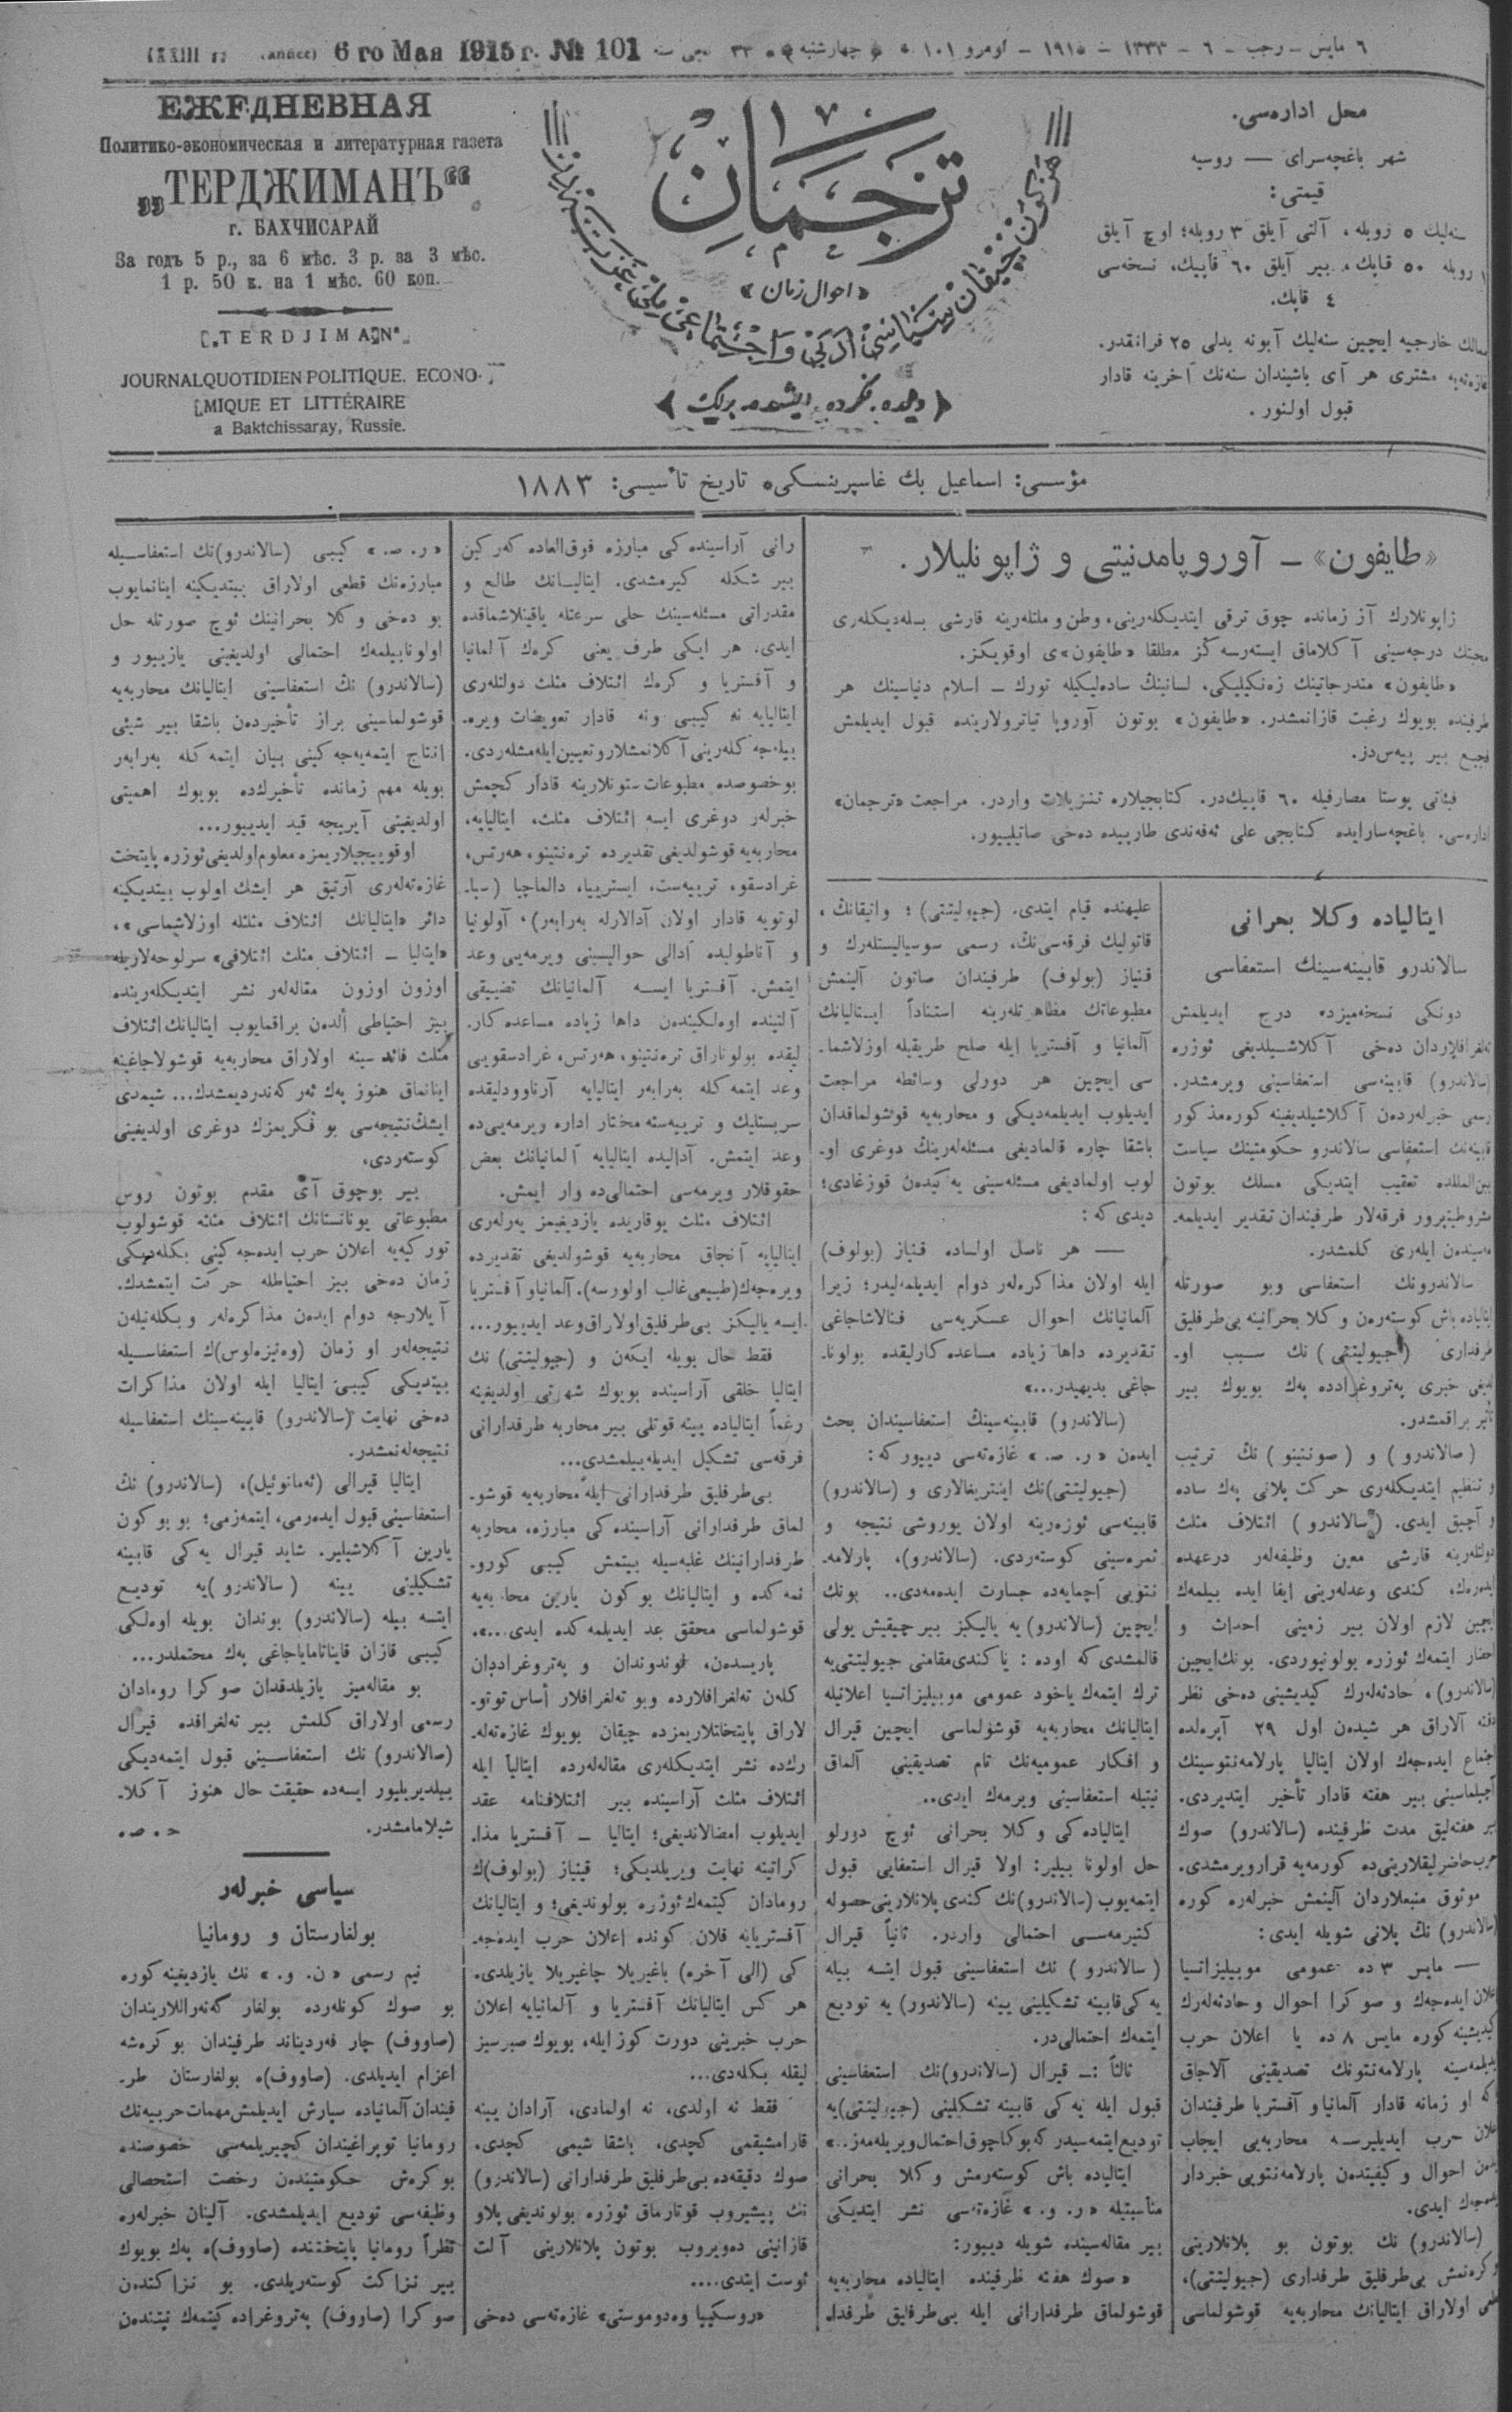 ٦ مایس – رجب – ٦ – ١٣٣٣ – ١٩١٥ – نومرو ١٠١ چهارشنبه ٣٣ نجی سنه
6 го Мая 1915 г. № 101
ЕЖЕДНЕВНАЯ
Политико-экономическая и литературная газета
„ТЕРДЖИМАНЪ“
г. БАХЧИСАРАЙ
За годъ 5 р., за 6 мѣс. 3 р. за 3 мѣс.
1 р. 50 к. на 1 мѣс. 60 коп.
„TERDJIMAN“
JOURNAL QUOTIDIEN POLITIQUE, ECONO-
MIQUE ET LITTÉRAIRE
a Baktchissaray, Russie.
ترجمان
«احوال زمان»
دیلده، فكرده، ایشده برلك
محل اداره‌سی.
شهر باغچه‌سرای — روسیه
قیمتی:
سنه‌لیك ٥ روبله، آلتی آیلق ٣ روبله؛ اوچ آیلق
١ روبله ٥٠ قاپك، بیر آیلق ٦٠ قاپیك، نسخه‌سی
٤ قاپك.
ممالك خارجیه ایچین سنه‌لیك آبونه بدلی ٢٥ فرانقدر.
غازه‌ته‌یه مشتری هر آی باشیندان سنه‌نك آخرینه قادار
قبول اولنور.
مؤسسی: اسماعیل بك غاسپرینسكی، تاریخ تأسیسی: ١٨٨٣
«طایفون» – آوروپا مدنیتی و ژاپونلیلار.
ژاپونلارك آز زمانده چوق ترقی ایتدیكله‌رینی، وطن و ملتله‌رینه قارشی بسله‌دیكله‌ری
محبتك درجه‌سینی آكلاماق ایسته‌رسه‌كز مطلقا «طایفون»ی اوقویكز.
«طایفون» مندرجاتینك زه‌نكیلیكی، لسانینك ساده‌لیكیله تورك – اسلام دنیاسینك هر
طرفنده بویوك رغبت قازانمشدر. «طایفون» بوتون آوروپا تیاترولارینده قبول ایدیلمش
فجیع بیر پیه‌س‌در.
فیئاتی پوستا مصارفیله ٦٠ قاپیك‌در. كتابجیلاره تنزیلات واردر. مراجعت «ترجمان»
اداره‌سی. باغچه‌سرایده كتابجی علی ئه‌فه‌ندی طارپیده ده‌خی صاتیلیور.
ایتالیاده وكلا بحرانی
سالاندرو قابینه‌سینك استعفاسی
دونكی نسخه‌میزده درج ایدیلمش
تلغرافلاردان ده‌خی آكلاشیلدیغی ئوزره
(سالاندرو) قابینه‌سی استعفاسینی ویرمشدر.
رسمی خبرله‌رده‌ن آكلاشیلدیغینه كوره مذكور
قابینه‌نك استعفاسی سالاندرو حكومتینك سیاست
بین‌المللده تعقیب ایتدیكی مسلك بوتون
مشروطیتپرور فرقه‌لار طرفیندان تقدیر ایدیلمه‌
مه‌سیندن ایله‌ری كلمشدر.
سالاندرونك استعفاسی وبو صورتله
ایتالیاده باش كوسته‌ره‌ن وكلا بحرانینه بی‌طرفلیق
طرفداری (جیولیتتی) نك سبب او‌
لدیغی خبری په‌تروغرادده پك بویوك بیر
تأثیر براقمشدر.
(صالاندرو) و (صوننینو) نك ترتیب
و تنظیم ایتدیكله‌ری حركت پلانی پك ساده
و آچیق ایدی. (سالاندرو) ائتلاف مثلث
دولتله‌رینه قارشی معین وظیفه‌له‌ر درعهده
ایده‌رك، كندی وعدله‌رینی ایفا ایده بیلمه‌ك
ایچین لازم اولان بیر زمینی احداث و
احضار ایتمه‌ك ئوزره بولونیوردی. بونك ایچین
(سالاندرو)، حادثه‌له‌رك كیدیشینی ده‌خی نظر
دقته آلاراق هر شیده‌ن اول ٢٩ آپره‌لده
اجتماع ایده‌جه‌ك اولان ایتالیا پارلامه‌نتوسینك
آچیلماسینی بیر هفته قادار تأخیر ایتدیردی.
بر هفته‌لیق مدت ظرفینده (سالاندرو) صوك
حرب حاضرلیقلارینی‌ده كورمه‌یه قرار ویرمشدی.
موثوق منبعلاردان آلینمش خبرله‌ره كوره
(سالاندرو) نك پلانی شویله ایدی:
— مایس ٣ ده عمومی موبیلیزاتسیا
اعلان ایده‌جه‌ك و صوكرا احوال و حادثه‌له‌رك
كیدیشینه كوره مایس ٨ ده یا اعلان حرب
ایدیلمه‌سینه پارلامه‌نتونك تصدیقینی آلاجاق
یاكه او زمانه قادار آلمانیا و آفستریا طرفیندان
اعلان حرب ایدیلیرسه محاربه‌یی ایجاب
ایده‌ن احوال و كیفیتده‌ن پارلامه‌نتویی خبردار
ایده‌جه‌ك ایدی.
(سالاندرو) نك بوتون بو پلانلارینی
كوره‌نمش بی‌طرفلیق طرفداری (جیولیتتی)،
قطعی اولاراق ایتالیانك محاربه‌یه قوشولماسی
علیهنده قیام ایتدی. (جیولیتتی)؛ واتیقانك،
قاتولیك فرقه‌سی‌نك، رسمی سوسیالیستله‌رك و
قنیاز (بولوف) طرفیندان صاتون آلینمش
مطبوعاتك مظاهرتله‌رینه استناداً ایتالیانك
آلمانیا و آفستریا ایله صلح طریقیله اوزلاشما‌
سی ایچین هر دورلی وسائطه مراجعت
ایدیلوب ایدیلمه‌دیكی و محاربه‌یه قوشولماقدان
باشقا چاره قالمادیغی مسئله‌له‌رینك دوغری او‌
لوب اولمادیغی مسئله‌سینی یه‌كیده‌ن قوزغادی؛
دیدی كه:
— هر ناصل اولساده قنیاز (بولوف)
ایله اولان مذاكره‌له‌ر دوام ایدیلمه‌لیدر؛ زیرا
آلمانیانك احوال عسكریه‌سی فنالاشاجاغی
تقدیرده داها زیاده مساعده‌كارلیقده بولونا‌
جاغی بدیهیدر...»
(سالاندرو) قابینه‌سینك استعفاسیندان بحث
ایده‌ن «ر. ص.» غازه‌ته‌سی دییور كه:
(جیولیتتی)نك اینتریغالاری و (سالاندرو)
قابینه‌سی ئوزه‌رینه اولان یوروشی نتیجه و
ثمره‌سینی كوسته‌ردی. (سالاندرو)، پارلامه‌
نتویی آچمایه‌ده جسارت ایده‌مه‌دی.. بونك
ایچین (سالاندرو) یه یالیكیز بیر چیقیش یولی
قالمشدی كه اوده: یا كندی مقامنی جیولیتتی‌یه
ترك ایتمه‌ك یاخود عمومی موبیلیزاتسیا اعلانیله
ایتالیانك محاربه‌یه قوشولماسی ایچین قیرال
و افكار عمومیه‌نك تام تصدیقینی آلماق
نیتیله استعفاسینی ویرمه‌ك ایدی..
ایتالیاده‌كی وكلا بحرانی ئوچ دورلو
حل اولونا بیلیر: اولا قیرال استعفایی قبول
ایتمه‌یوب (سالاندرو)نك كندی پلانلارینی حصوله
كتیرمه‌سی احتمالی واردر. ثانیاً قیرال
(سالاندرو) نك استعفاسینی قبول ایتسه بیله
یه‌كی قابینه تشكیلینی یینه (سالاندور) یه تودیع
ایتمه‌ك احتمالی‌در.
ثالثاً :— قیرال (سالاندرو)نك استعفاسینی
قبول ایله یه‌كی قابینه تشكیلینی (جیولیتتی)یه
تودیع ایتمه‌سیدر كه بوكا چوق احتمال ویریله‌مه‌ز..»
ایتالیاده باش كوسته‌رمش وكلا بحرانی
مناسبتیله «ر. و.» غازه‌ته‌سی نشر ایتدیكی
بیر مقاله‌سینده شویله دییور:
«صوك هفته ظرفینده ایتالیاده محاربه‌یه
قوشولماق طرفدارانی ایله بی‌طرفلیق طرفدا‌
رانی آراسینده‌كی مبارزه فوق‌العاده كه‌ركین
بیر شكله كیرمشدی. ایتالیانك طالع و
مقدراتی مسئله‌سینك حلی سرعتله یاقینلاشماقده
ایدی. هر ایكی طرف یعنی كره‌ك آلمانیا
و آفستریا و كره‌ك ائتلاف مثلث دولتله‌ری
ایتالیایه نه كیبی ونه قادار تعویضات ویره‌
بیله‌جه‌كله‌رینی آكلانمشلار و تعیین ایله‌مشله‌ردی.
بو خصوصده مطبوعات ستونلارینه قادار كچمش
خبرله‌ر دوغری ایسه ائتلاف مثلث، ایتالیایه،
محاربه‌یه قوشولدیغی تقدیرده تره‌نتینو، هه‌رتس،
غرادسقو، تریه‌ست، ایستریا، دالماچیا (سپا‌
لوتویه قادار اولان آدالارله به‌رابه‌ر)، آولونیا
و آناطولیده آدالی حوالیسینی ویرمه‌یی وعد
ایتمش. آفستریا ایسه آلمانیانك تضییقی
آلتینده اوه‌لكینده‌ن داها زیاده مساعده‌كار‌
لیقده بولوناراق تره‌نتینو، هه‌رتس، غرادسقویی
وعد ایتمه‌كله به‌رابه‌ر ایتالیایه آرناوودلیقده
سربستلیك و تریه‌سته مختار اداره ویرمه‌یی‌ده
وعد ایتمش. آدالیده ایتالیایه آلمانیانك بعض
حقوقلار ویرمه‌سی احتمالی‌ده وار ایمش.
ائتلاف مثلث یوقاریده یازدیغیمز یه‌رله‌ری
ایتالیایه آنجاق محاربه‌یه قوشولدیغی تقدیرده
ویره‌جه‌ك (طبیعی غالب اولورسه). آلمانیا و آفستریا
ایسه یالیكز بی‌طرفلیق اولاراق وعد ایدییور...
فقط حال بویله ایكه‌ن و (جیولیتتی) نك
ایتالیا خلقی آراسینده بویوك شهرتی اولدیغینه
رغماً ایتالیاده یینه قوتلی بیر محاربه طرفدارانی
فرقه‌سی تشكیل ایدیله بیلمشدی...
بی‌طرفلیق طرفدارانی ایله محاربه‌یه قوشو‌
لماق طرفدارانی آراسینده‌كی مبارزه، محاربه
طرفدارانینك غلبه‌سیله بیتمش كیبی كورو‌
نمه‌كده و ایتالیانك بوكون یارین محاربه‌یه
قوشولماسی محقق عد ایدیلمه‌كده ایدی...».
پاریسده‌ن، لوندوندان و په‌تروغراددان
كله‌ن ته‌لغرافلارده وبو ته‌لغرافلار أساس توتو‌
لاراق پایتختلاریمزده چیقان بویوك غازه‌ته‌له‌
رك‌ده نشر ایتدیكله‌ری مقاله‌له‌رده ایتالیا ایله
ائتلاف مثلث آراسینده بیر ائتلافنامه عقد
ایدیلوب امضالاندیغی؛ ایتالیا – آفستریا مذا‌
كراتینه نهایت ویریلدیكی؛ قنیاز (بولوف)ك
رومادان كیتمه‌ك ئوزره بولوندیغی؛ و ایتالیانك
آفستریایه فلان كونده اعلان حرب ایده‌جه‌
كی (الی آخره) باغیریلا چاغیریلا یازیلدی.
هر كس ایتالیانك آفستریا و آلمانیایه اعلان
حرب خبرینی دورت كوز ایله، بویوك صبرسیز
لیقله بكله‌دی...
فقط نه اولدی، نه اولمادی، آرادان یینه
قارامشیقمی كچدی، باشقا شیمی كچدی،
صوك دقیقه‌ده بی‌طرفلیق طرفدارانی (سالاندرو)
نك پیشیروب قوتارماق ئوزره بولوندیغی پلاو
قازانینی ده‌ویروب بوتون پلانلارینی آلت
ئوست ایتدی....
«روسكییا وه‌دوموستی» غازه‌ته‌سی ده‌خی
«ر. ص.» كیبی (سالاندرو)نك استعفاسیله
مبارزه‌نك قطعی اولاراق بیتدیكینه اینانمایوب
بو ده‌خی وكلا بحرانینك ئوچ صورتله حل
اولونابیلمه‌ك احتمالی اولدیغینی یازییور و
(سالاندرو) نك استعفاسینی ایتالیانك محاربه‌یه
قوشولماسینی براز تأخیرده‌ن باشقا بیر شیئی
انتاج ایتمه‌یه‌جه‌كینی بیان ایتمه‌كله به‌رابه‌ر
بویله مهم زمانده تأخیرك‌ده بویوك اهمیتی
اولدیغینی آیریجه قید ایدییور...
اوقوییجیلاریمزه معلوم اولدیغی ئوزره پایتخت
غازه‌ته‌له‌ری آرتیق هر ایشك اولوب بیتدیكینه
دائر «ایتالیانك ائتلاف مثلثله اوزلاشماسی»،
«ایتالیا – ائتلاف مثلث ائتلافی» سرلوحه‌لاریله
اوزون اوزون مقاله‌له‌ر نشر ایتدیكله‌رینده
بیز احتیاطی ألده‌ن براقمایوب ایتالیانك ائتلاف
مثلث فائده‌سینه اولاراق محاربه‌یه قوشولاجاغینه
اینانماق هنوز پك ئه‌ركه‌ندر دیمشدك... شیمدی
ایشك نتیجه‌سی بو فكریمزك دوغری اولدیغینی
كوسته‌ردی،
بیر بوچوق آی مقدم بوتون روس
مطبوعاتی یونانستانك ائتلاف مثلثه قوشولوب
توركیه‌یه اعلان حرب ایده‌جه‌كینی بكله‌دیكی
زمان ده‌خی بیز احتیاطله حركت ایتمشدك.
آیلارجه دوام ایده‌ن مذاكره‌له‌ر و بكله‌نیله‌ن
نتیجه‌له‌ر او زمان (وه‌نیزه‌لوس)ك استعفاسیله
بیتدیكی كیبی ایتالیا ایله اولان مذاكرات
ده‌خی نهایت (سالاندرو) قابینه‌سینك استعفاسیله
نتیجه‌له‌نمشدر.
ایتالیا قیرالی (ئه‌مانوئیل)، (سالاندرو) نك
استعفاسینی قبول ایده‌رمی، ایتمه‌زمی؛ بو بوكون
یارین آكلاشیلیر. شاید قیرال یه‌كی قابینه
تشكیلینی یینه (سالاندرو)یه تودیع
ایتسه بیله (سالاندرو) بوندان بویله اوه‌لكی
كیبی قازان قایناتامایاجاغی پك محتملدر...
بو مقاله‌میز یازیلدقدان صوكرا رومادان
رسمی اولاراق كلمش بیر ته‌لغرافده قیرال
(صالاندرو) نك استعفاسینی قبول ایتمه‌دیكی
بیلدیریلیور ایسه‌ده حقیقت حال هنوز آكلا‌
شیلامامشدر. ح. ص.
سیاسی خبرله‌ر
بولغارستان و رومانیا
نیم رسمی «ن. و.» نك یازدیغینه كوره
بو صوك كونله‌رده بولغار گه‌نه‌راللاریندان
(صاووف) چار فه‌ردیناند طرفیندان بوكره‌شه
اعزام ایدیلدی. (صاووف)ه بولغارستان طر‌
فیندان آلمانیاده سپارش ایدیلمش مهمات حربیه‌نك
رومانیا توپراغیندان كچیریلمه‌سی خصوصنده
بوكره‌ش حكومتینده‌ن رخصت استحصالی
وظیفه‌سی تودیع ایدیلمشدی. آلینان خبرله‌ره
نظراً رومانیا پایتختنده (صاووف)ه پك بویوك
بیر نزاكت كوسته‌ریلدی. بو نزاكتده‌ن
صوكرا (صاووف) په‌تروغراده كیتمه‌ك نیتنده‌ن